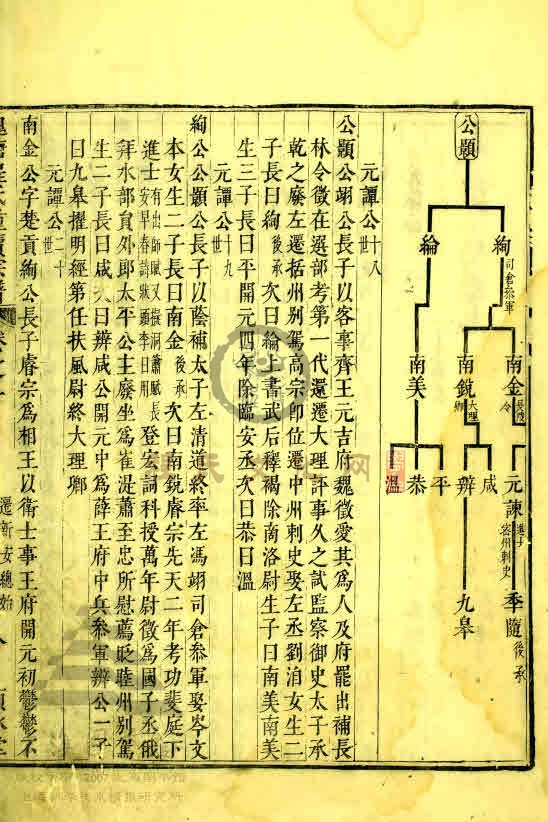 公顯
絢
司倉參軍
綸
南金
南銳
大理
卿
南美
元諫
進士
密州刺史
咸
辨
平
恭
溫
季隨
後承
九皋
元譚公十八世
公顯公翊公長子以客事齊王元吉府魏徵愛其為人及府罷出補長
林令徵在選部考第一代還遷大理評事久之試監察御史太子承
乾之廢左遷括州别駕高宗卽位遷中州刺史娶左丞劉洎女生二
子長曰絢後承次曰綸上書武后釋褐除南洛尉生子曰南美南美
生三子長曰平開元四年除臨安丞次曰恭曰溫
元譚公十九世
絢公公顯公長子以蔭補太子左清道終率左馮翊司倉參軍娶岑文
本女生二子長曰南金後承次曰南銳睿宗先天二年考功裴庭下
進士有出師賦又擬洞簫賦長安早春詩狀頭李日用登宏詞科授萬年尉徵為國子丞俄
拜水部員外郎太平公主廢坐為崔湜蕭至忠所慰薦貶睦州别駕
生二子長曰咸次曰辨咸公開元中為薛王府中兵參軍辨公一子
曰九皋擢明經第任扶風尉終大理卿
元譚公二十世
南金公字楚貢絢公長子睿宗為相王以衛士事王府開元初鬱鬱不
遷新安總始